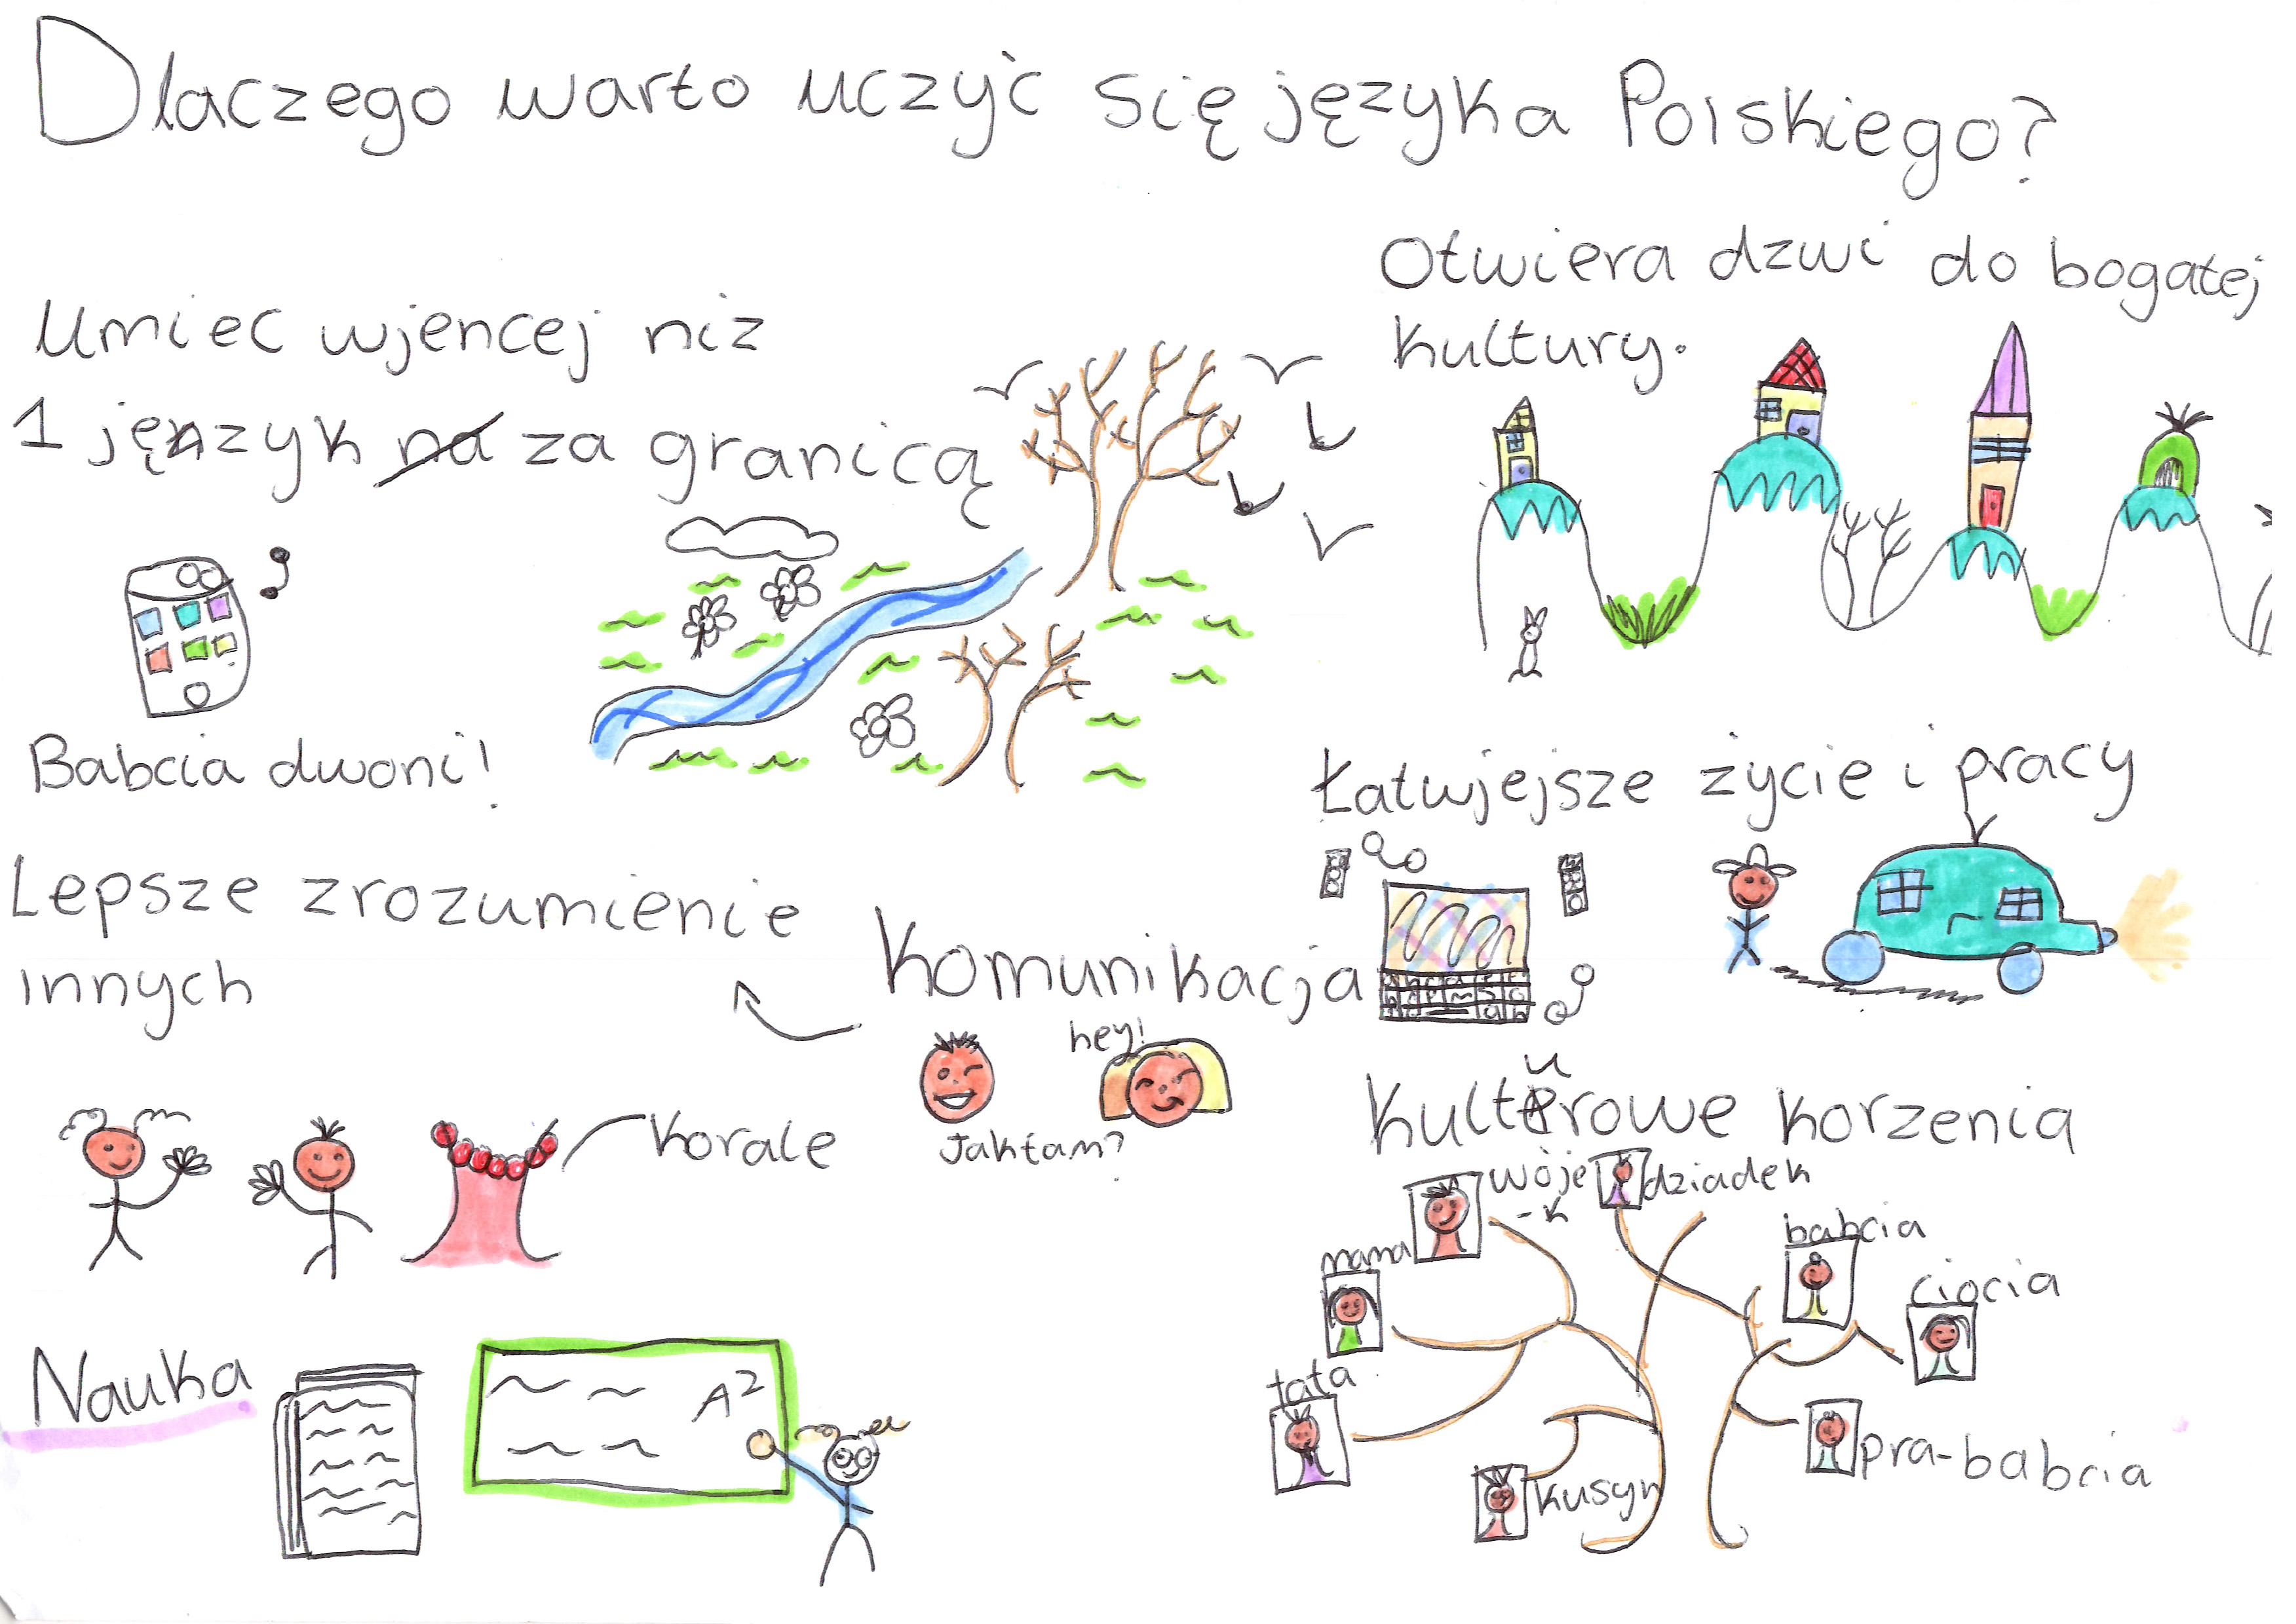 Dlaczego warto uczyć się języka Polskiego?
Umiec wjencej niż
1 język na za granicą
Babcia dwoni!
Otwiera dzwi do bogatej
kultury.
Łatwjejsze życie i pracy
Lepsze zrozumienie
innych
Komunikacja
hey!
Jak tam?
Korale
Kulturowe korzenia
wóje
-k
dziadek
mama
babcia
ciocia
tata
kusyn
pra-babcia
Nauka
A2